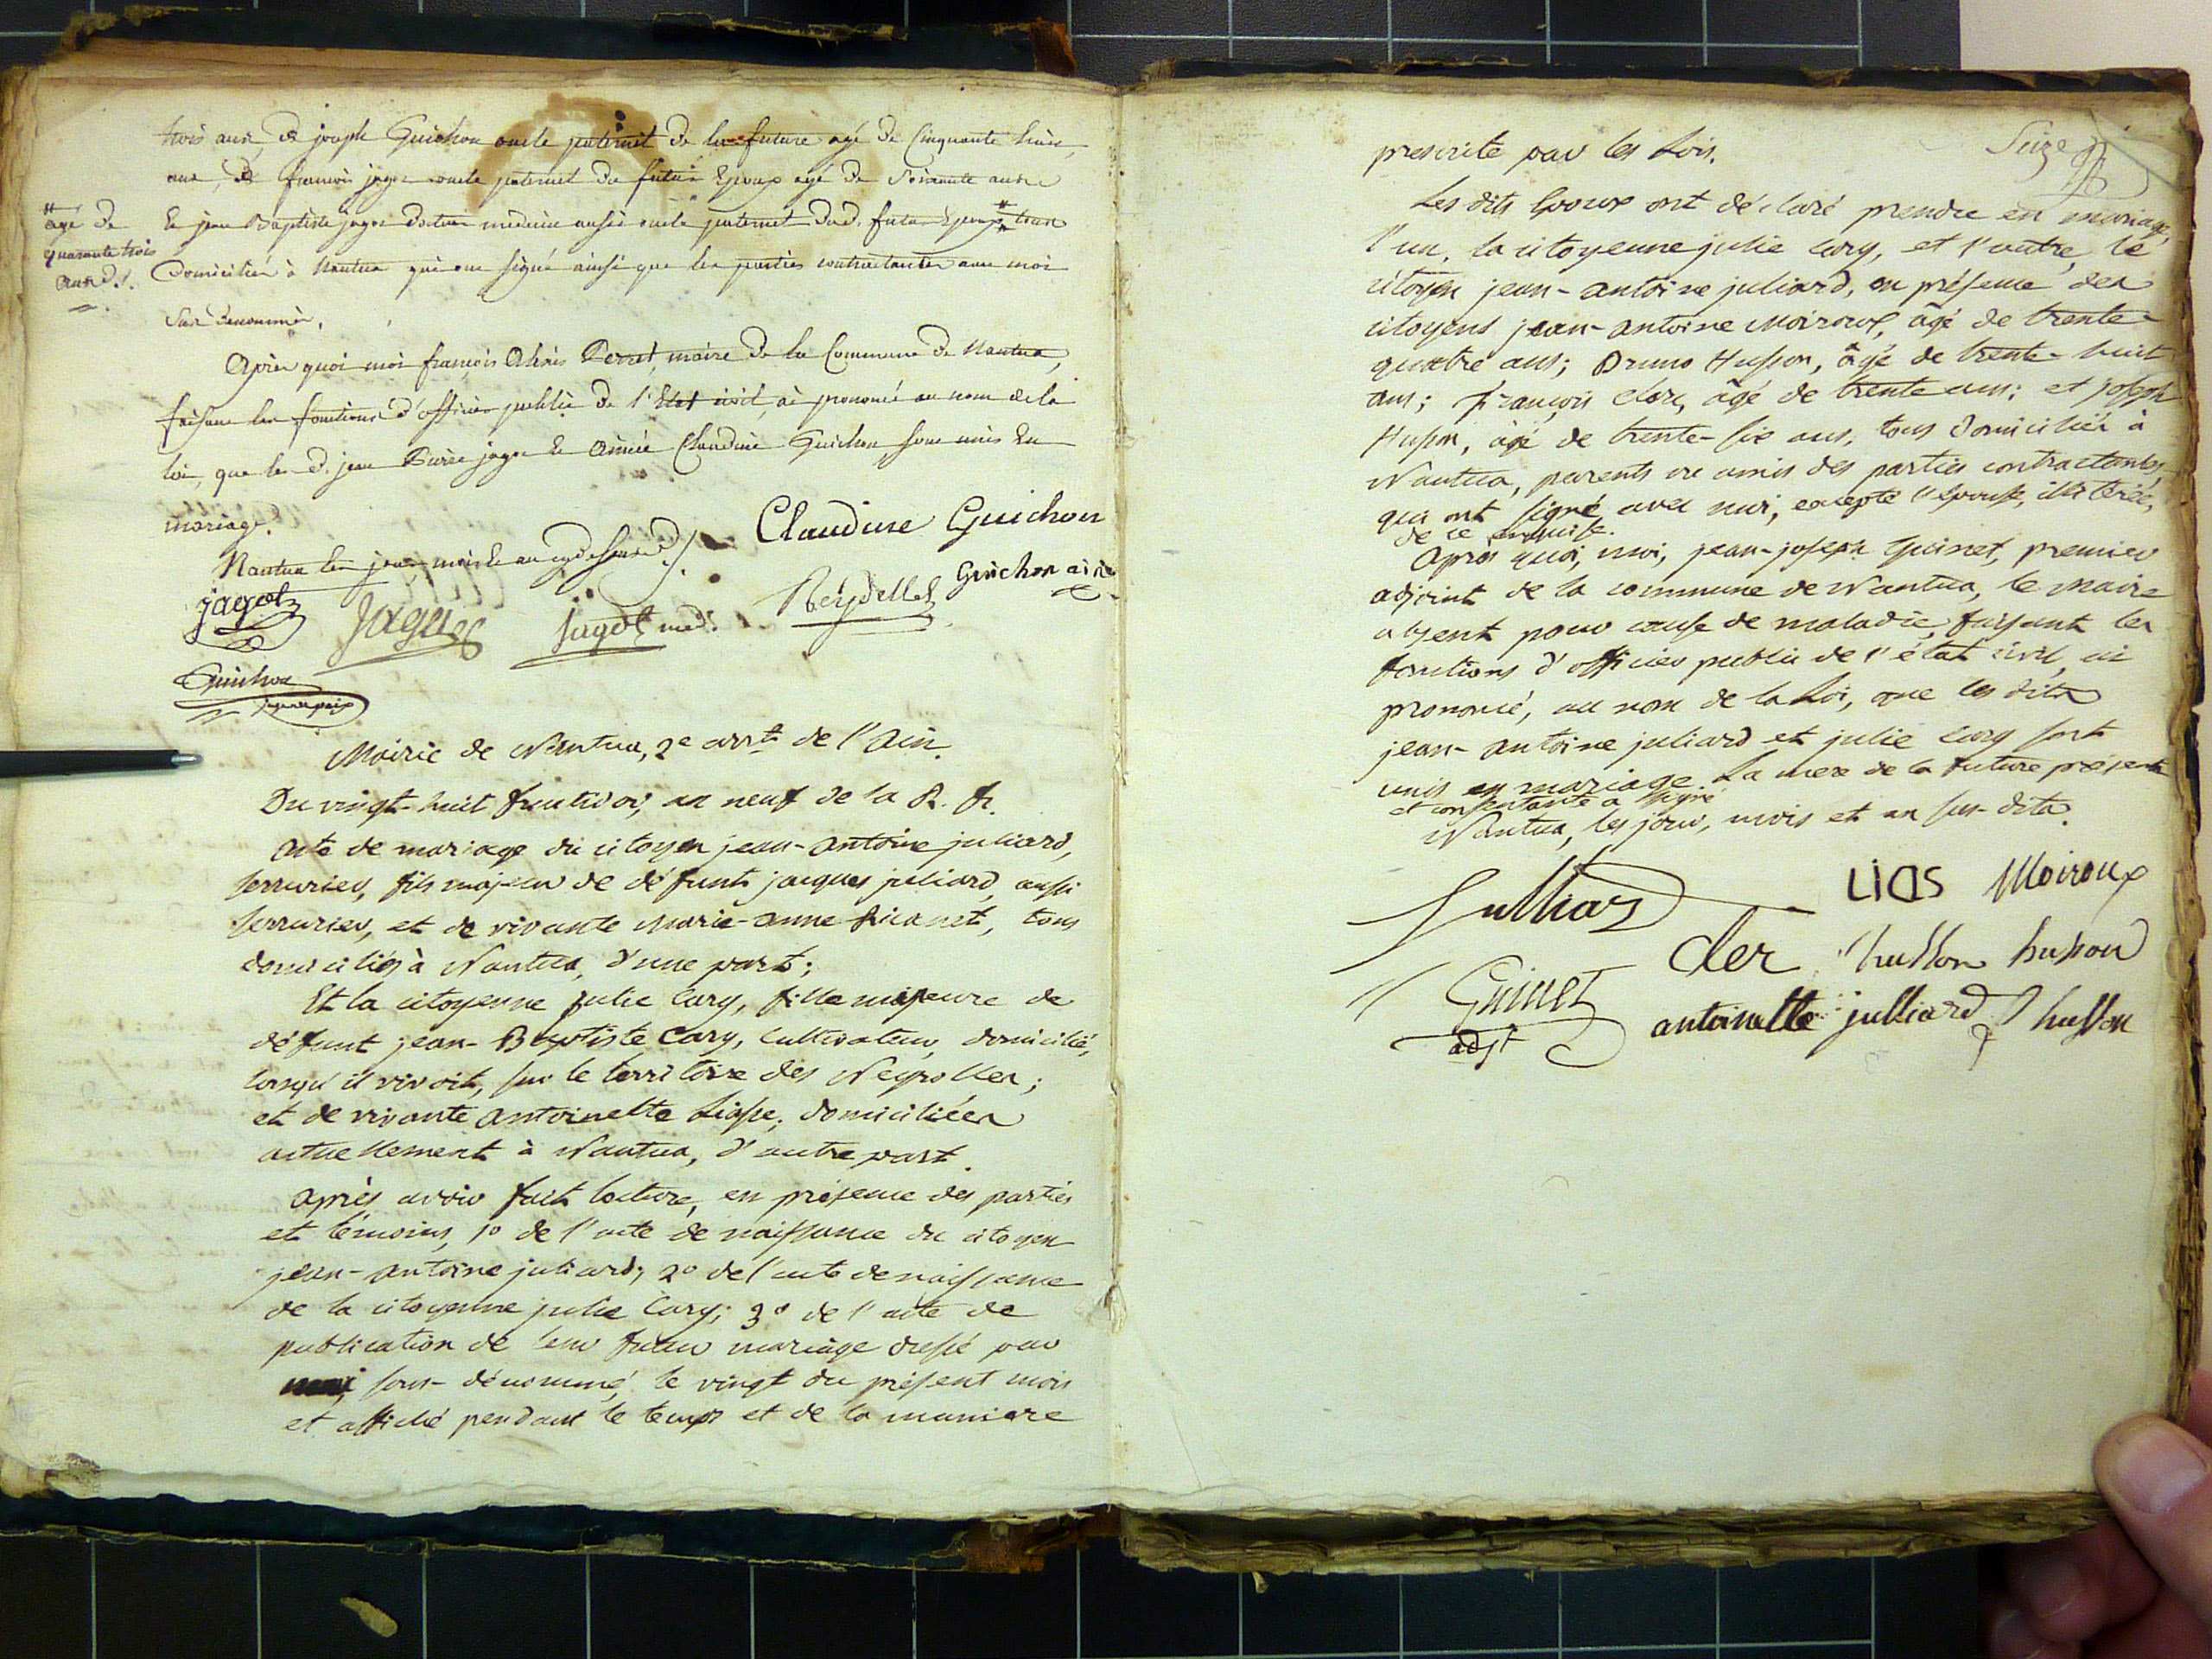 trois ans, de joseph Guichon oncle paternel de la future agé de Cinquante trois
ans, de françois jagot oncle paternel du futur Epoux agé de Soixante ans
Et jean Baptiste jagot docteur medecin aussi oncle paternel dud. futur Epoux # tous
# agé de
quarante trois
ans d.t.
Domiciliés à Nantua qui ont signé ainsi que les parties contractantes avec moi
Sus dénommé.
Après quoi moi françois Perret, maire de la Commune de Nantua,
faisant les fonctions d'officier public de l'Etat civil, ai prononcé au nom de la
loi, que les d. jean jagot Et Aimée Claudine Guichon sont unis En
mariage.
Nantua les jour, mois Et an cy dessus d./.
Claudine Guichon
jagot
Jagot
jagot med.
Reydellet
Guichon ainé
Guichon
juge de paix
Mairie de Nantua, 2e arrt. de l'Ain.
Du vingt-huit fructidor, an neuf de la R. fr.
Acte de mariage du citoyen jean-antoine juliard,
serrurier, fils majeur de défunt jacques juliard, aussi
serrurier, et de vivante Marie-anne Ricanet, tous
domiciliés à Nantua, d'une part;
Et la citoyenne julie Cary, fille majeure de
défunt jean-Baptiste Cary, cultivateur, domicilié,
lorsqu'il vivoit, sur le territoire des Neyrolles;
et de vivante antoinette Liasse, domiciliées
actuellement à Nantua, d'autre part.
Après avoir fait lecture, en présence des parties
et témoins, 1o de l'acte de naissance du citoyen
jean-antoine juliard; 2o de l'acte de naissance
de la citoyenne julie Cary; 3o de l'acte de
publication de leur futur mariage dressé par
moi, sous-dénommé, le vingt du présent mois
et affiché pendant le temps et de la maniere
Seize
prescrite par les Lois.
Les dits Epoux ont déclaré prendre en mariage,
l'un, la citoyenne julie Cary, et l'autre, le
citoyen jean-antoine juliard, en présence des
citoyens jean-antoine Moiroux, âgé de trente-
quatre ans; Bruno Husson, âgé de trente-huit
ans; françois clerc, âgé de trente ans; et joseph
Husson, âgé de trente-six ans, tous domiciliés à
Nantua, parents ou amis des parties contractantes,
qui ont signé avec moi, excepté l'épouse, illiterée,
de ce enquise.
Après quoi, moi, jean-joseph Guinet, premier
adjoint de la commune de Nantua, le Maire
absent pour cause de maladie, faisant les
fonctions d'officier public de l'état civil, ai
prononcé, au nom de la Loi, que les dits
jean-antoine juliard et julie Cary sont
unis en mariage. La mere de la future présente
et consentante a signé
Nantua, les jour, mois et an sus-dits.
Julliard
LiaS Moiroux
cler husson husson
Guinet
adjt
antoinette julliard husson